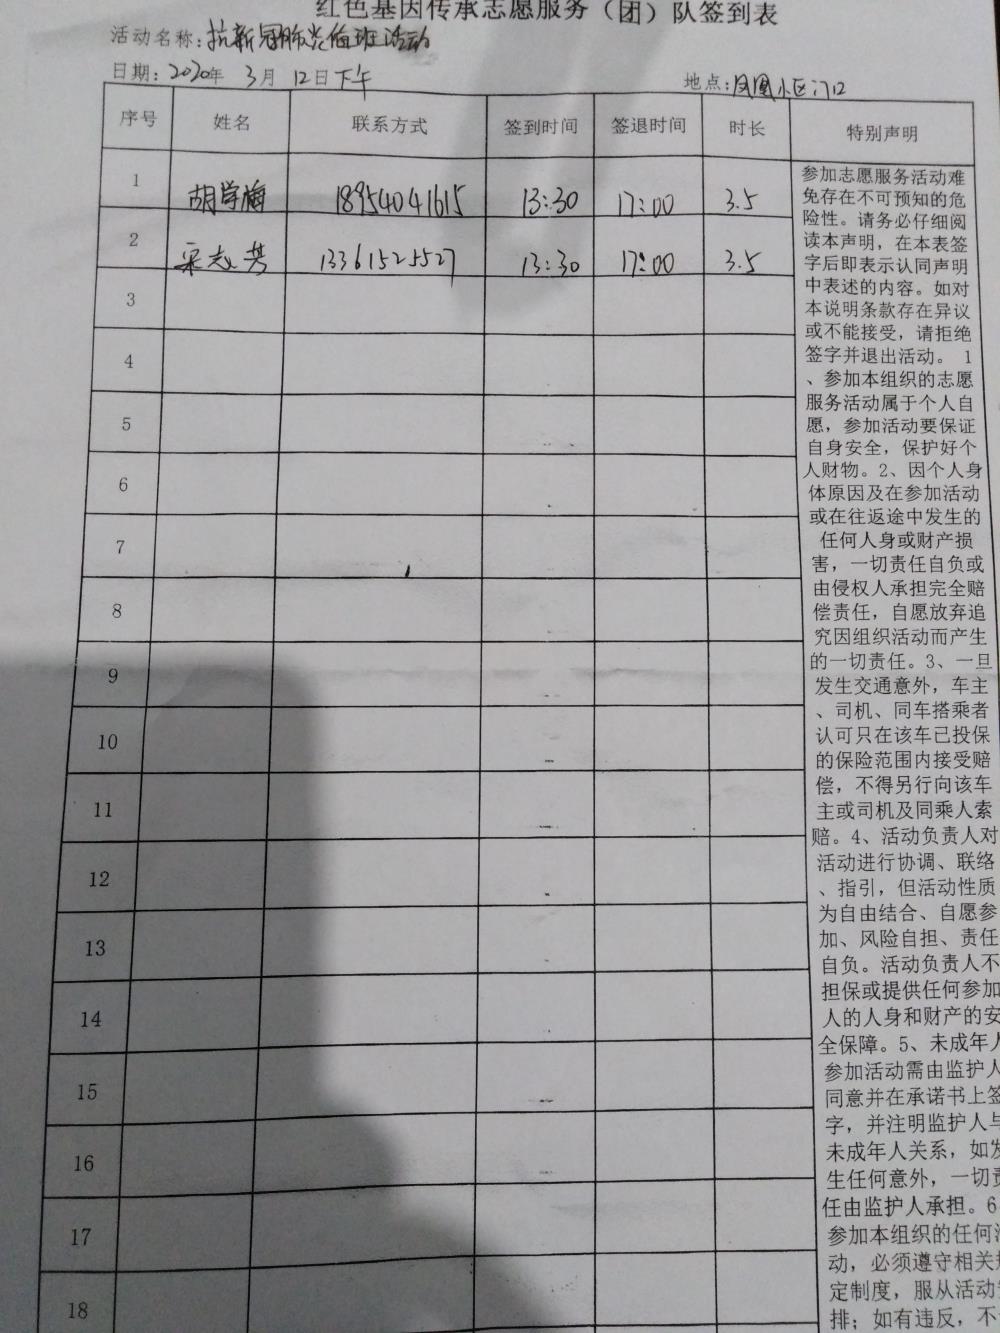 红色基因传承志愿服务（团）队签到表
活动名称：抗新冠肺炎值班活动
日期：2020年 3月 12日下午 地点：凤凰小区门口
序号 姓名 联系方式 签到时间 签退时间 时长 特别声明
1 胡学梅 18954041615 13:30 17:00 3.5
2 宋志芳 13361525527 13:30 17:00 3.5
3
4
5
6
7
8
9
10
11
12
13
14
15
16
17
18
参加志愿服务活动难
免存在不可预知的危
险性。请务必仔细阅
读本声明，在本表签
字后即表示认同声明
中表述的内容。如对
本说明条款存在异议
或不能接受，请拒绝
签字并退出活动。 1
、参加本组织的志愿
服务活动属于个人自
愿，参加活动要保证
自身安全，保护好个
人财物。2、因个人身
体原因及在参加活动
或在往返途中发生的
任何人身或财产损
害，一切责任自负或
由侵权人承担完全赔
偿责任，自愿放弃追
究因组织活动而产生
的一切责任。3、一旦
发生交通意外，车主
、司机、同车搭乘者
认可只在该车已投保
的保险范围内接受赔
偿，不得另行向该车
主或司机及同乘人索
赔。4、活动负责人对
活动进行协调、联络
、指引，但活动性质
为自由结合、自愿参
加、风险自担、责任
自负。活动负责人不
担保或提供任何参加
人的人身和财产的安
全保障。5、未成年人
参加活动需由监护人
同意并在承诺书上签
字，并注明监护人与
未成年人关系，如发
生任何意外，一切责
任由监护人承担。6
参加本组织的任何活
动，必须遵守相关规
定制度，服从活动安
排；如有违反，不